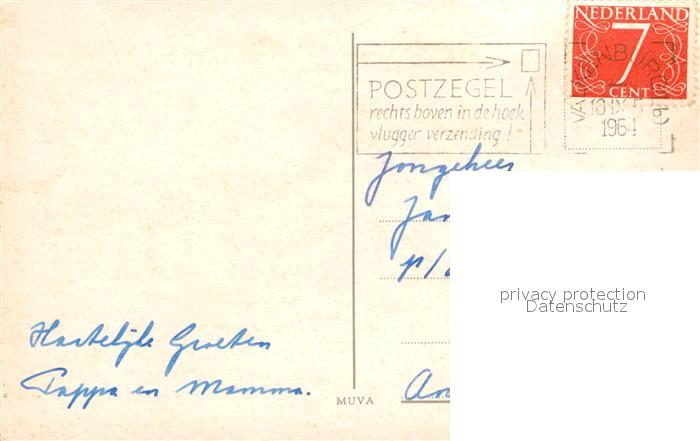 NEDERLAND
7
CENT
POSTZEGEL
rechts boven in de hoek
vlugger verzending!
VALKENBURG
1964
Jongeheer
Jan
p/
An
privacy protection
Datenschutz
Hartelijke Groeten
Pappa en Mamma.
MUVA